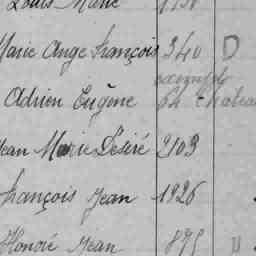 Louis Marie 1138
Marie Ange François 340 D
exempt
Adrien Eugène 64 chateau
Jean Marie Désiré 2103
François Jean 1826
Honoré Jean 895 D